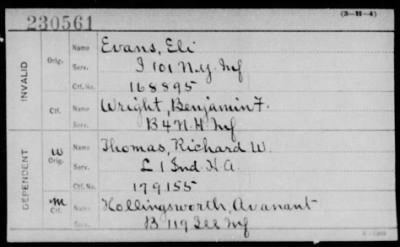 230561 (3-11-4)
INVALID
Orig. Name Evans, Eli
Serv. I 101 N.Y. Inf
Ctf. No. 168895
Ctf. Name Wright, Benjamin F.
Serv. B 4 N.H. Inf
DEPENDENT
W Orig. Name Thomas, Richard W.
Serv. L 1 Ind H.A.
Ctf. No. 179155
M Ctf. Name Hollingsworth, Avanant
Serv. B 119 Ill Inf